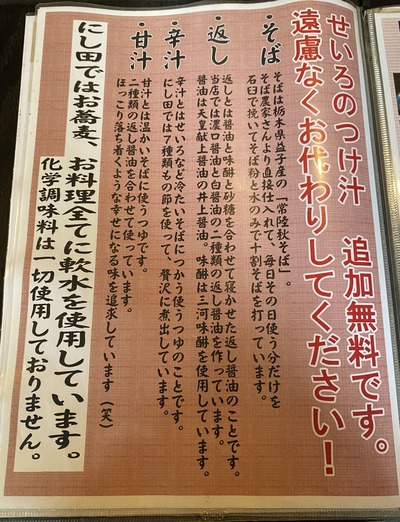 せいろのつけ汁　追加無料です。
遠慮なくお代わりしてください！
・そば
そばは栃木県益子産の「常陸秋そば」。
そば農家さんより直接仕入れて、毎日その日使う分だけを
石臼で挽いてそば粉と水のみで十割そばを打っています。
・返し
返しとは醤油と味醂と砂糖を合わせて寝かせた返し醤油のことです。
当店では濃口醤油と白醤油の二種類の返し醤油を作っています。
醤油は天皇献上醤油の井上醤油。味醂は三河味醂を使用しています。
・辛汁
辛汁とはせいろなど冷たいそばにつかう使うつゆのことです。
にし田では一種類もの節を使って、贅沢に煮出しています。
・甘汁
甘汁とは温かいそばに使うつゆです。
二種類の返し醤油を合わせて使っています。
ほっこり落ち着くような幸せになる味を追求しています（笑）
にし田ではお蕎麦、お料理全てに軟水を使用しています。
化学調味料は一切使用しておりません。